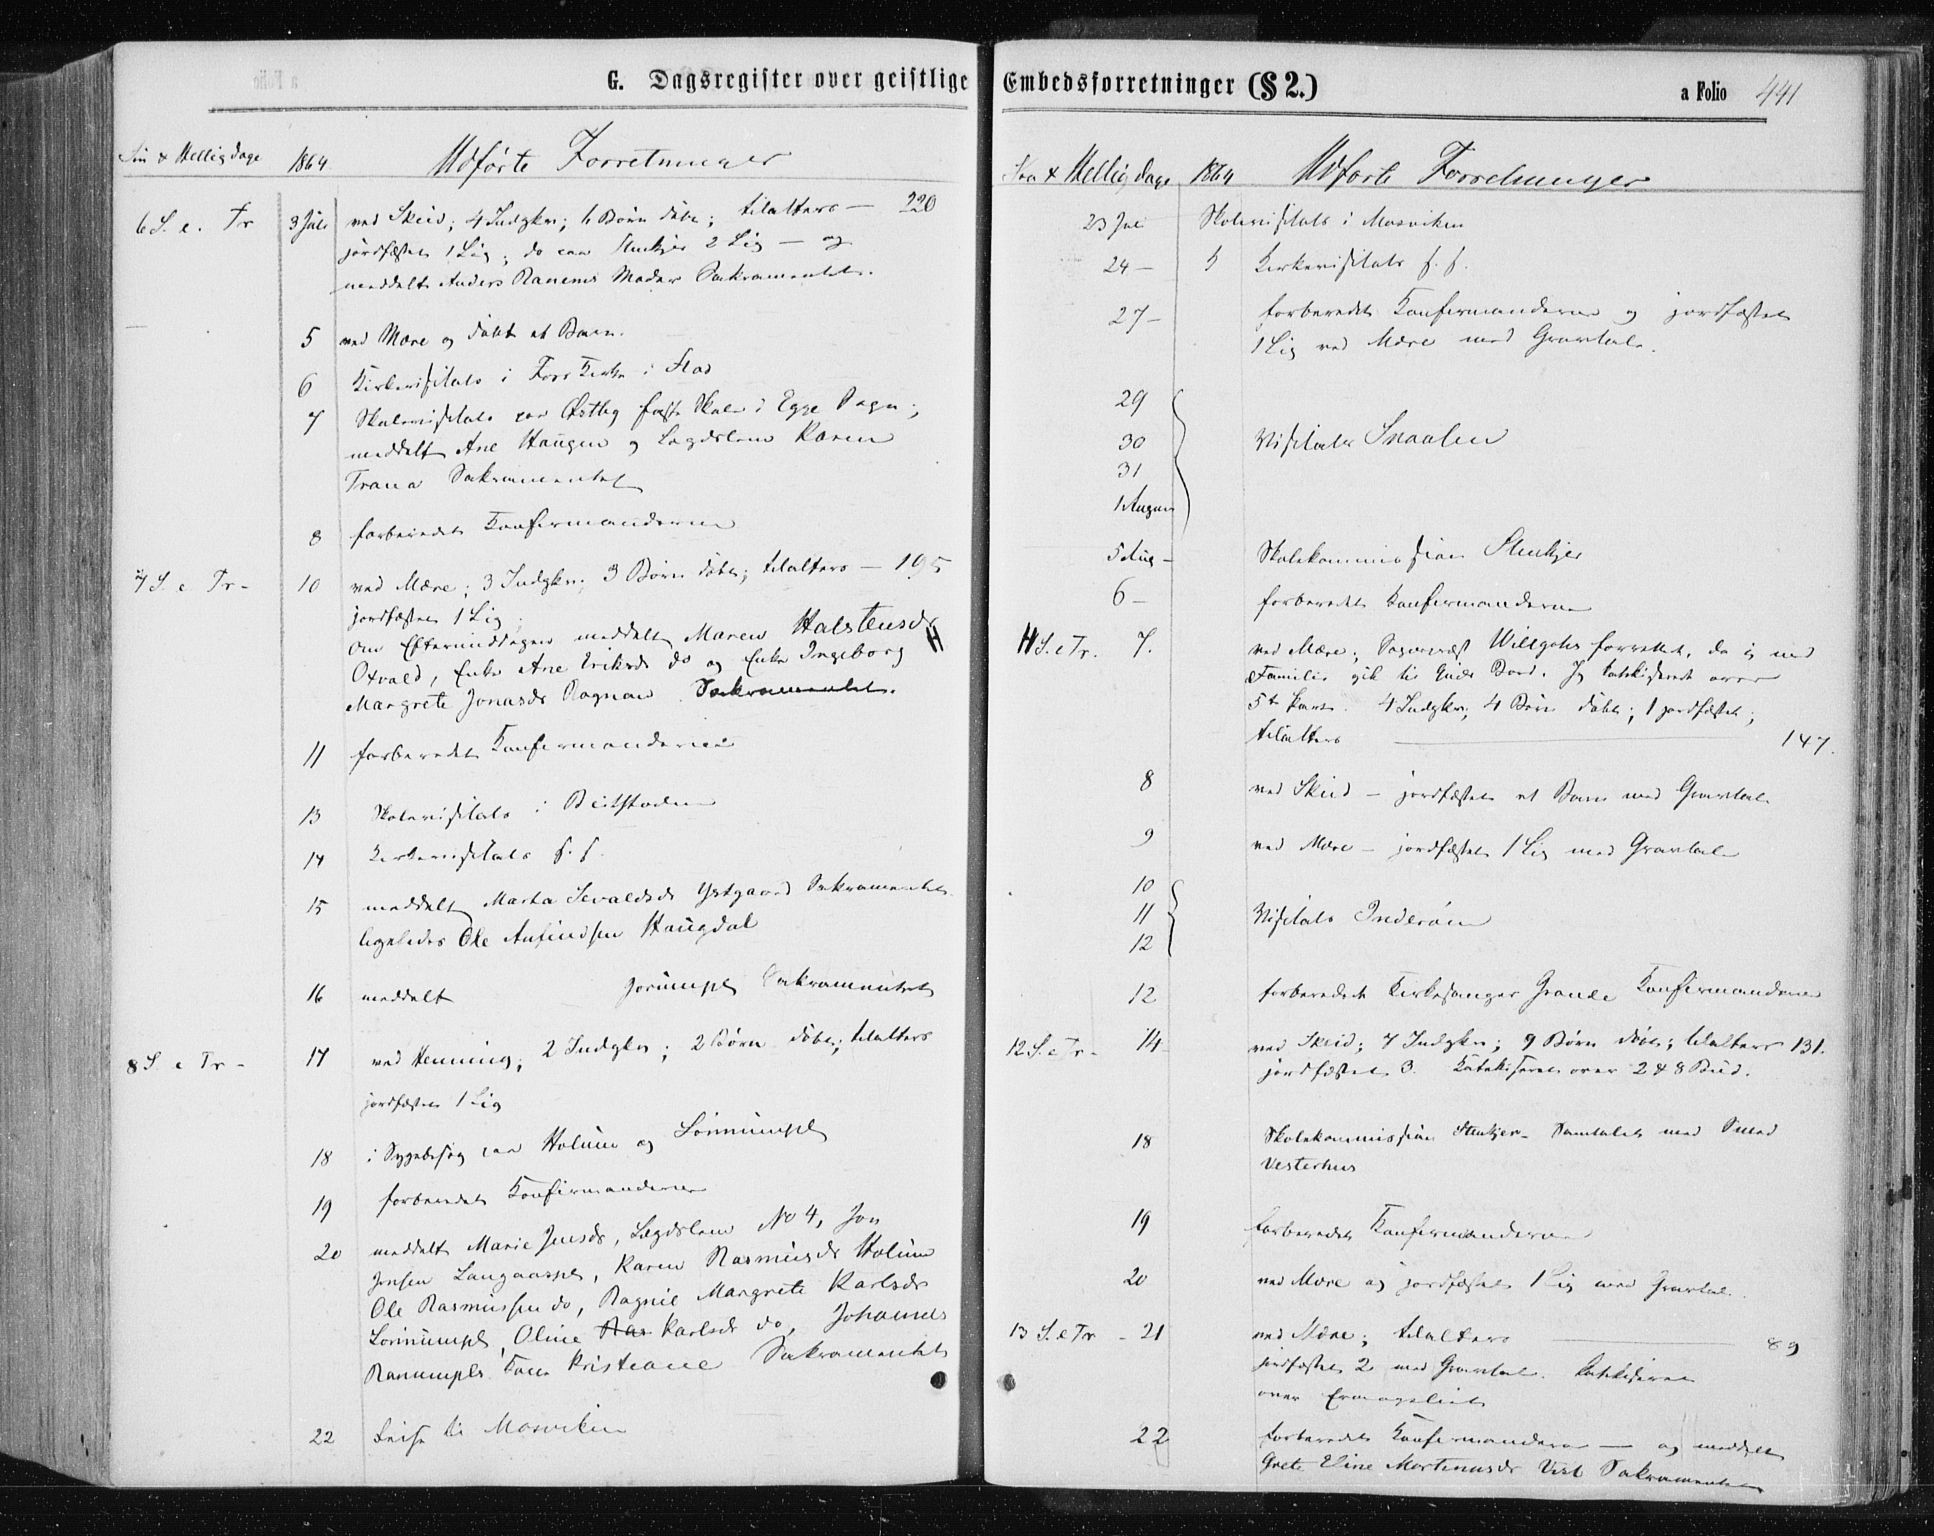 G. Dagsregister over geistlige
Søn & Hellig dage 1864 Udførte Forretninger
6 S. e. Tr 3 Juli ved Skeid; 4 Indgkn; 6 Børn døbt; tilalters — 220
jordfæstet 1 Lig; do paa Stenkjer 2 Lig — og
meddelt Anders Ranems Moder Sakramentet.
5 ved Mære og døbt et Barn.
6 Kirkevisitats i Foss Kirke i Stod
7 Skolevisitats paa Østby faste Skole i Egge Sogn;
meddelt Ane Haugen og Lægdslem Karen
Trana Sakramentet
8 forberedet Konfirmanderne
7 S. e Tr - 10 ved Mære; 3 Indgkn; 3 Børn døbt; tilalters — 195
jordfæstet 1 Lig.
Om Eftermiddagen meddelt Maren Halstensdr
Oxvald, Enke Ane Eriksdr do og Enke Ingeborg
Margrete Jonasdr Rognan Sakramentet.
11 forberedet Konfirmanderne
13 Skolevisitats i Beitstaden
14 Kirkevisitats s. s.
15 meddelt Marta Sevaldsdr Ystgaard Sakramentet
ligeledes Ole Anfindsen Haugdal
16 meddelt Sakramentet
8 S. e Tr - 17 ved Henning; 2 Indgkn; 2 Børn døbt; tilalters
jordfæstet 1 Lig
18 i Sygebesøg paa Holum og
19 forberedet Konfirmanderne
20 meddelt Marie Jensdr, Lægdslem No 4, Jon
Jensen Langaaspl, Karen Rasmusdr Holum
Ole Rasmussen do, Ragnil Margrete Karlsdr
Oline Ras Karlsdr do, Johannes
Kone Kristiane Sakramentet
22 Reise til Mosviken
Embedsforretninger (§ 2.)
a Folio 441
Søn & Hellig dage 1864 Udførte Forretninger
23 Jul Skolevisitats i Mosviken
24 — Kirkevisitats s. s.
27 — forberedet Konfirmanderne og jordfæstet
1 Lig ved Mære med Gravtale.
29
30 Visitats Snaasen
31
1 August
5 Aug — Skolekommission Stenkjer
6 — forberedet Konfirmanderne
11 S. e Tr. 7. ved Mære; Sogneprest Willgohs forrettet, da jeg med
Familie gik til Guds Bord. Jeg katekiserede over
5te Part. 4 Indgkn; 4 Børn døbt; 1 jordfæstet;
tilalters 147.
8 ved Skeid — jordfæstet et Barn med Gravtale
9 ved Mære — jordfæstet 1 Lig med Gravtale
10
11 Visitats Inderøen
12
12 forberedede Kirkesanger Grande Konfirmanderne
12 S. e Tr - 14 ved Skeid; 7 Indgkn; 9 Børn døbt; tilalters 131.
jordfæstet 3. Katekiseret over 2 & 8 Bud.
18 Skolekommission Stenkjer — Samtalet med Smed
Vesterhus
19 forberedet Konfirmanderne
20 ved Mære og jordfæstet 1 Lig med Gravtale.
13 S. e Tr - 21 ved Mære; tilalters 89
jordfæstet 2 med Gravtale. Katekiseret
over Evangeliet
22 forberedet Konfirmanderne — og meddelt
Grete Eline Mortinusdr Vist Sakramentet